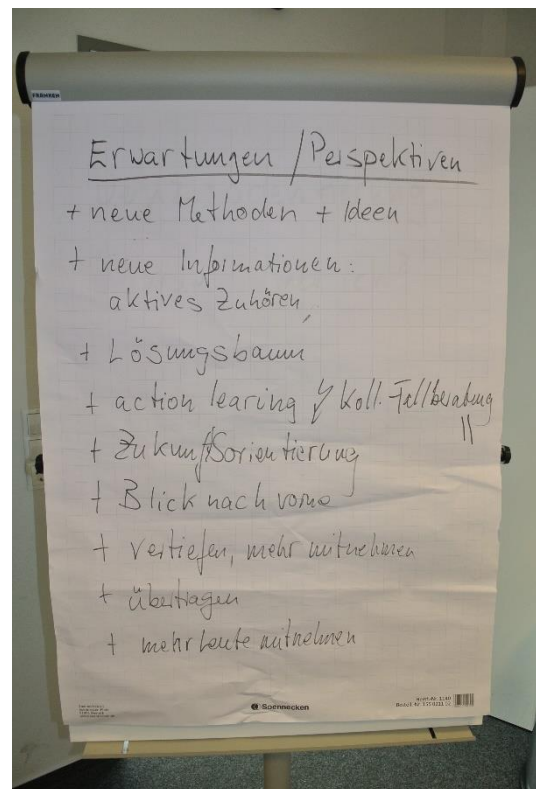 FRANKEN
Erwartungen / Perspektiven
+ neue Methoden + Ideen
+ neue Informationen:
aktives Zuhören,
+ Lösungsbaum
+ action learing ↯ Koll. Fallberatung
+ Zukunftsorientierung
+ Blick nach vorne
+ vertiefen, mehr mitnehmen
+ übertragen
+ mehr Leute mitnehmen
Soennecken